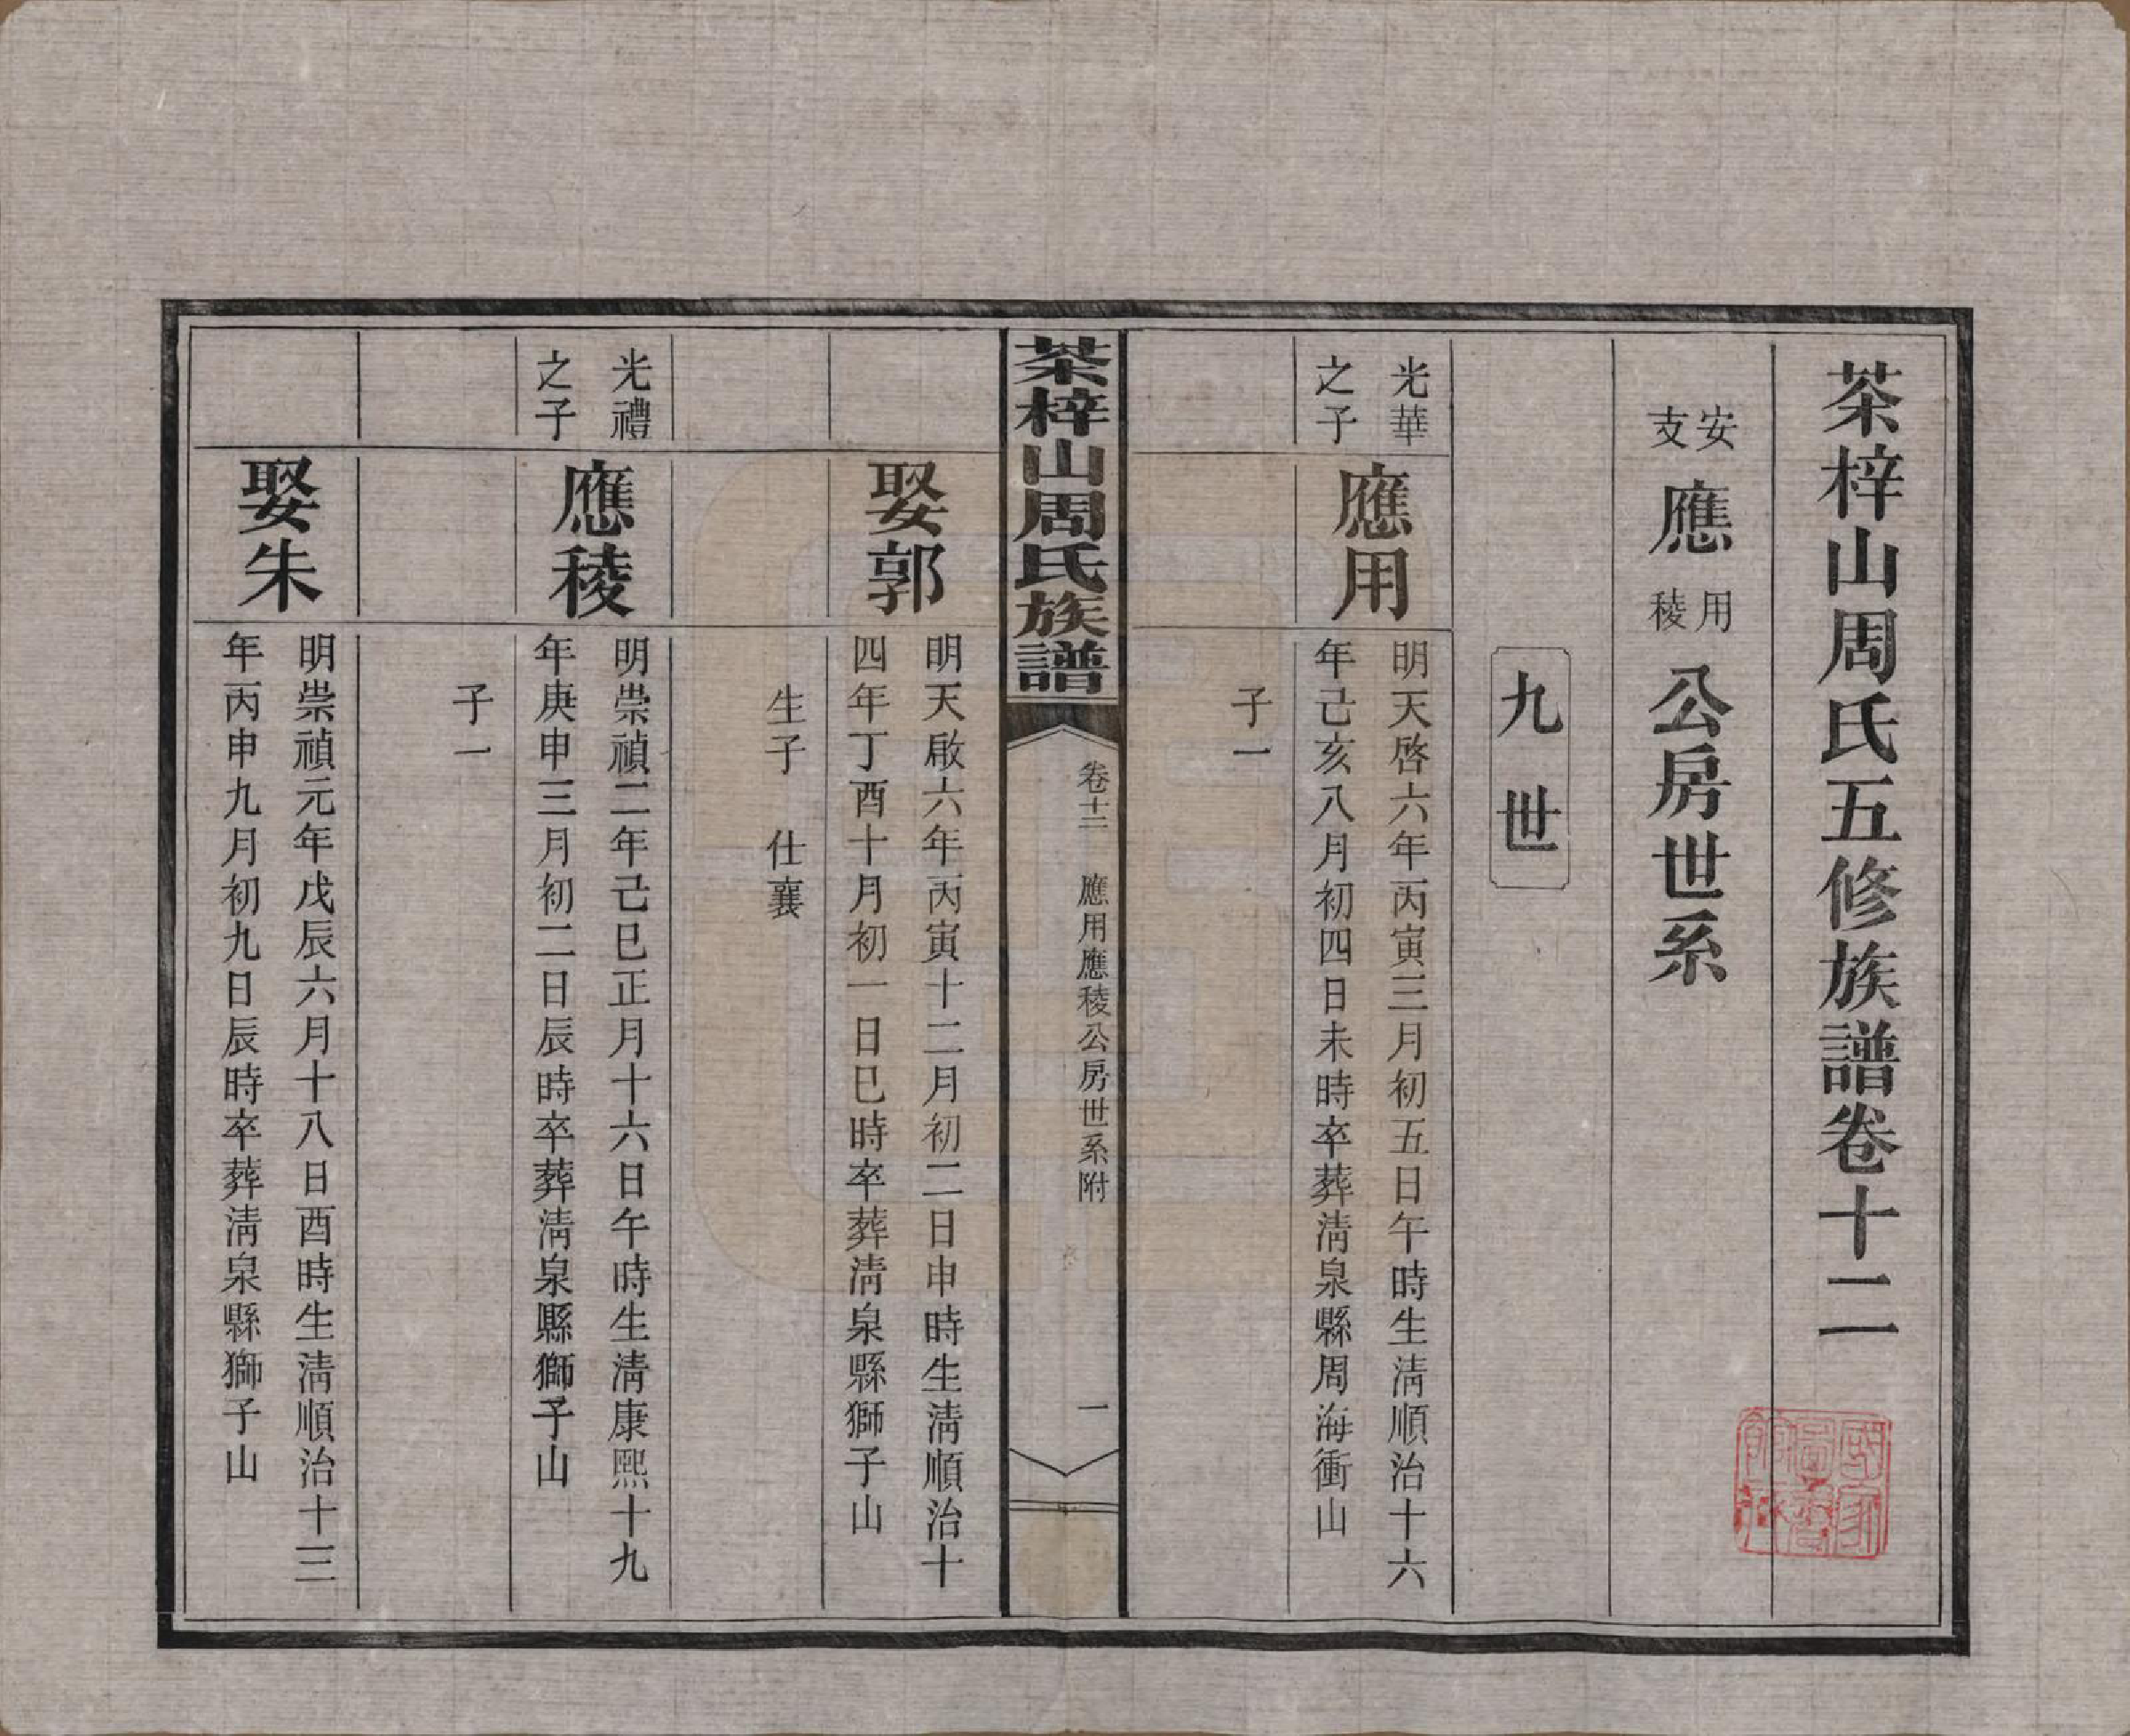 茶梓山周氏五修族譜卷十二
安支應用稜公房世系
九世
光華
之子
應用
明天啓六年丙寅三月初五日午時生淸順治十六
年己亥八月初四日未時卒葬淸泉縣周海衝山
子一
茶梓山周氏族譜
卷十二
應用應稜公房世系附
一
娶郭
明天啟六年丙寅十二月初二日申時生淸順治十
四年丁酉十月初一日巳時卒葬淸泉縣獅子山
生子 仕襄
光禮
之子
應稜
明崇禎二年己巳正月十六日午時生淸康熙十九
年庚申三月初二日辰時卒葬淸泉縣獅子山
子一
娶朱
明崇禎元年戊辰六月十八日酉時生淸順治十三
年丙申九月初九日辰時卒葬淸泉縣獅子山